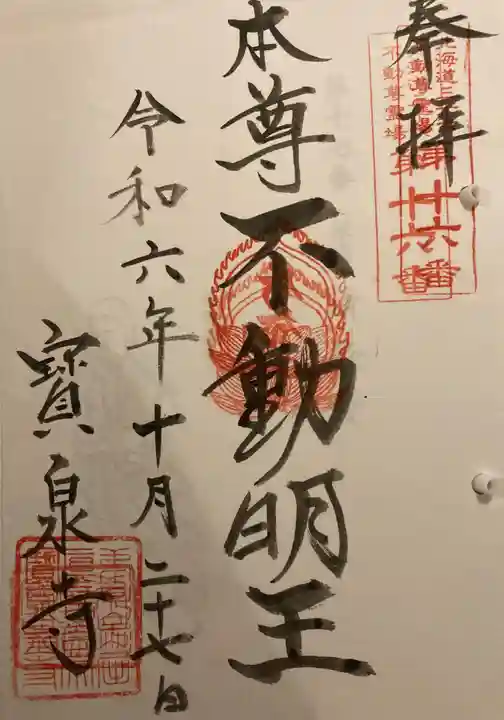 奉拝
北海道三十六
不動尊霊場
第廿六番
本尊不動明王
令和六年十月二十七日
寳泉寺